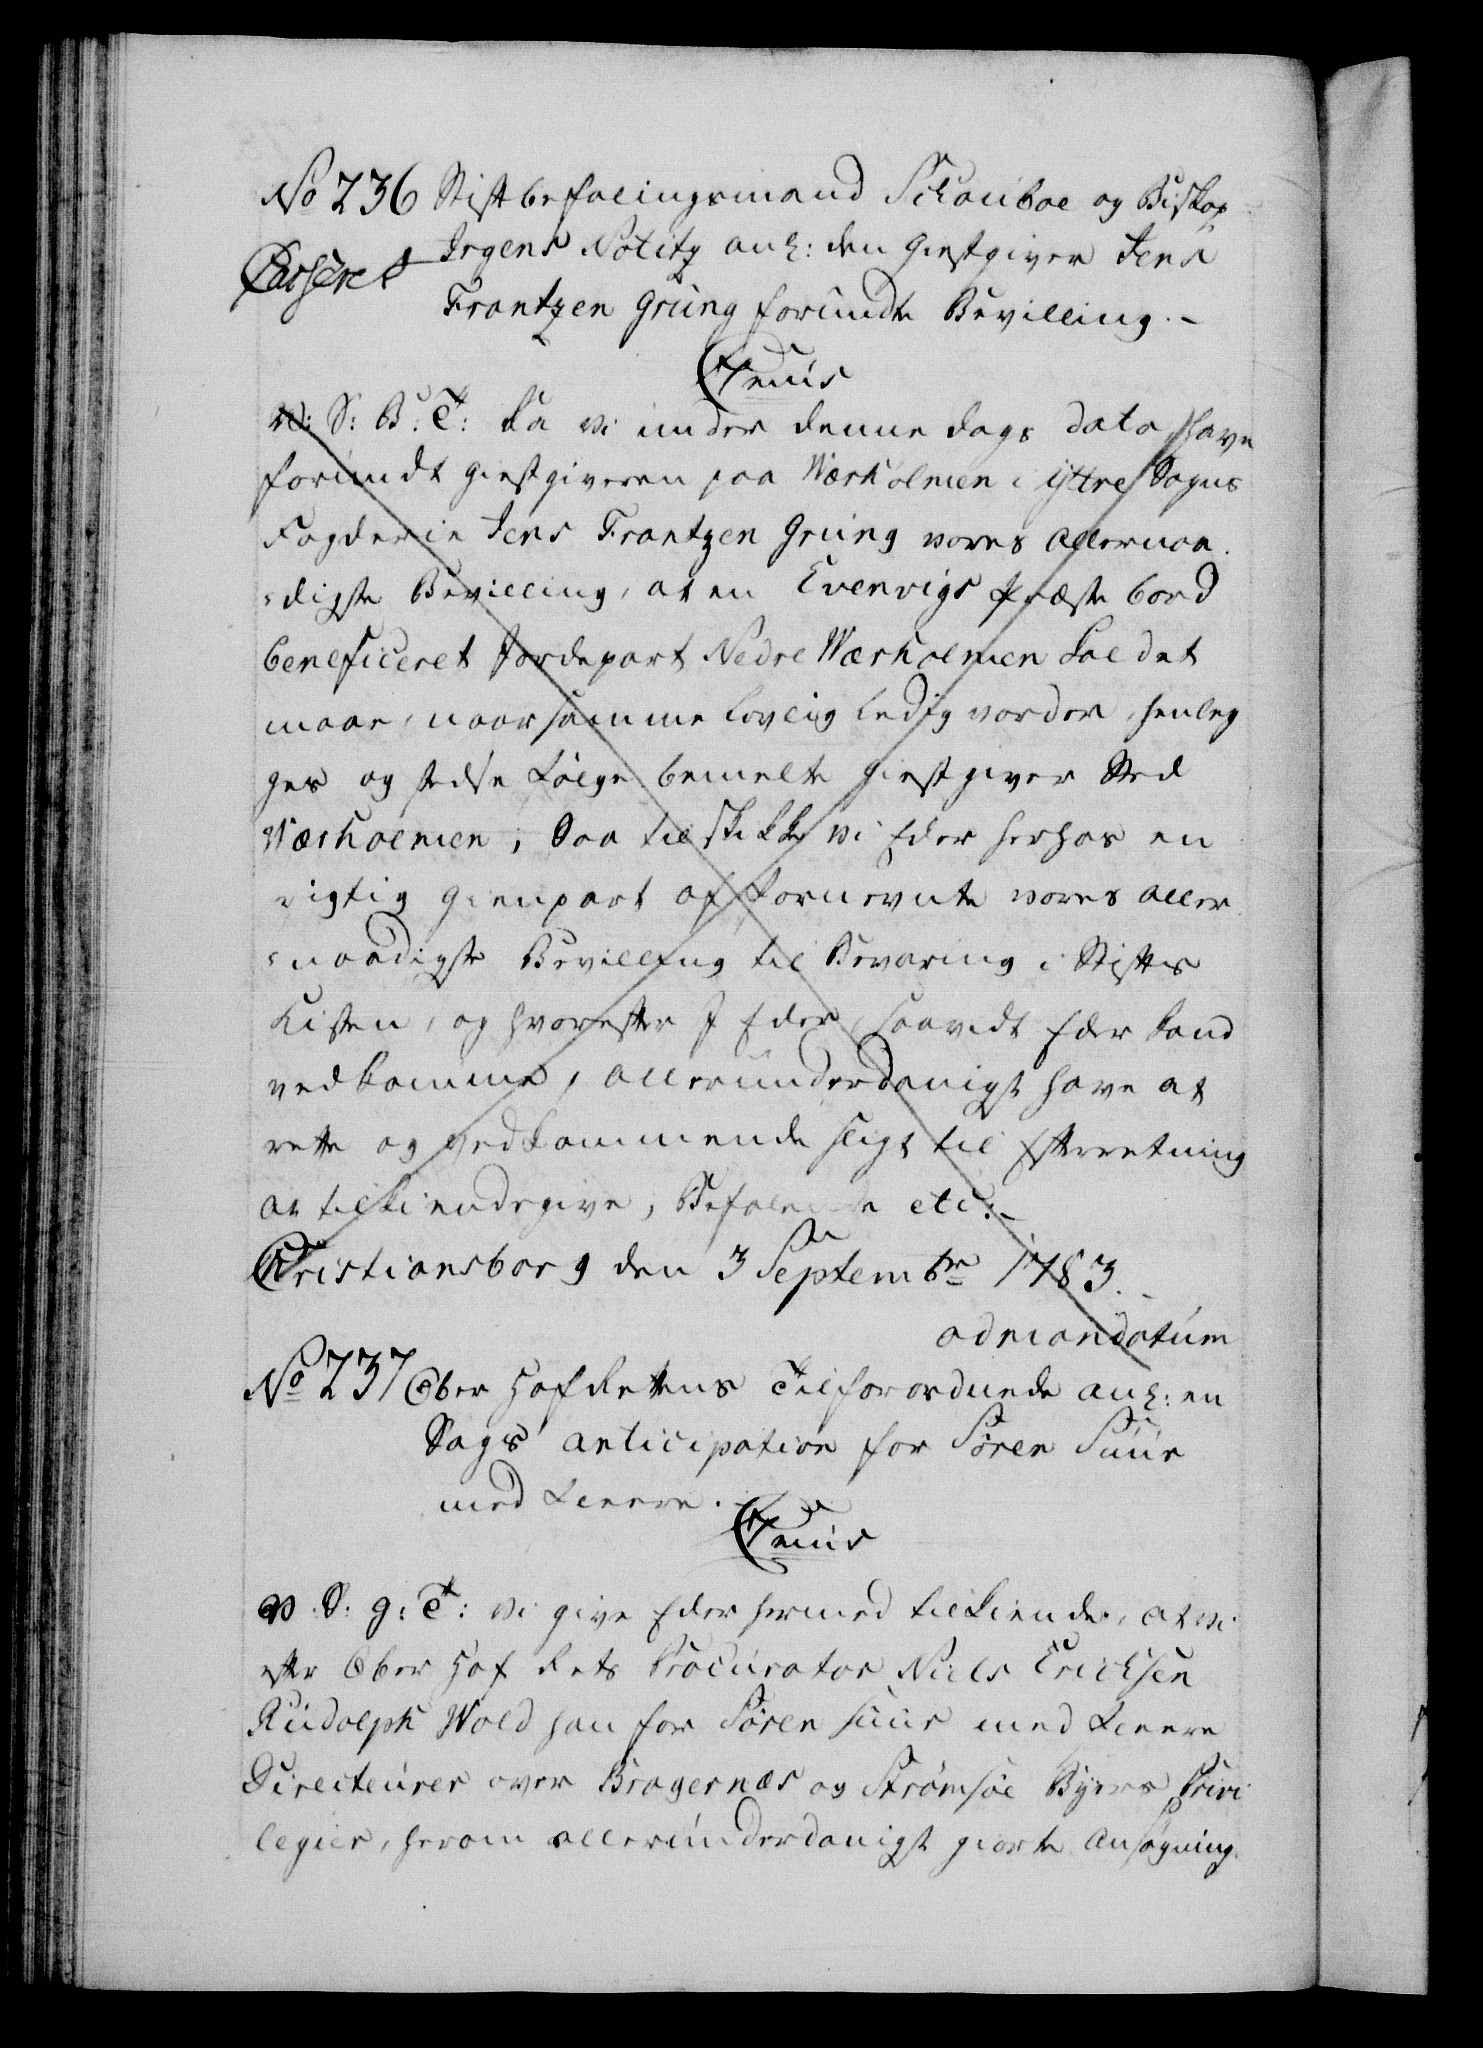 No 236 Stiftbefalingsmand Schouboe og Biskop
Irgens Notitz anl: den Giestgiver Jens
Casseret
Frantzen Grüng forundte Bevilling.-
C7mus
V: S: B: T: Da vi under denne dags dato have
forundt giestgiveren paa Wærholmen i yttre Sogns
Fogderie Jens Frantzen Grüng vores allernaa
digste Bevilling, at en Evenvigs Præstebord
beneficeret Jordepart Nedre Wærholmen kaldet
maae, naar samme lovlig ledig vorder, henleg
ges og stedse følge bemelte giestgiver Sted
Wærholmen; Saa tilskikke vi Eder herhos en
rigtig Gienpart af fornevnte vores aller
naadigste Bevilling til Bevaring i Stifts
Kisten, og hvorefter I Eder, saavidt Eder kand
vedkomme, allerunderdanigst have at
rette og vedkommende sligt til Efterretning
at tilkiendegive, Befalende etc:-
Christiansborg den 3 Septembr 1783.
admandatum
No 237 Ober Hof Rettens Tilforordnede anl: en
Sags anticipation for Søren Suur
med Fleere.
C7mus
V: S: g: T: vi give Eder hermed tilkiende, at vi
efter Ober Hof Rets Procurator Niels Erichsen
Rudolph Wold han for Søren Suur med Fleere
Directeurer over Bragernæs og Strømsøe Byers Privi
legier, herom allerunderdanigst giorte Ansøgning.